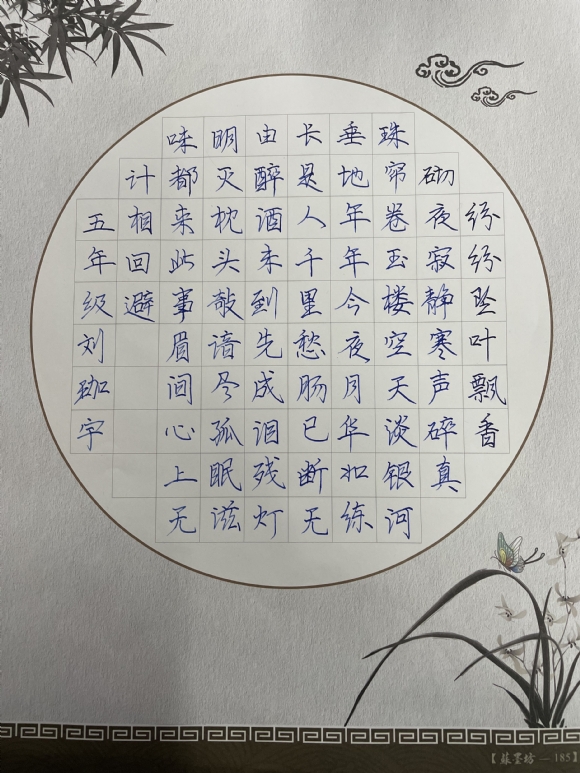 纷纷坠叶飘香
砌夜寂静寒声碎真
珠帘卷玉楼空天淡银河
垂地年年今夜月华如练
长是人千里愁肠已断无
由醉酒未到先成泪残灯
明灭枕头敧谙尽孤眠滋
味都来此事眉间心上无
计相回避
五年级刘珈宇
【蘇墨坊 — 185】